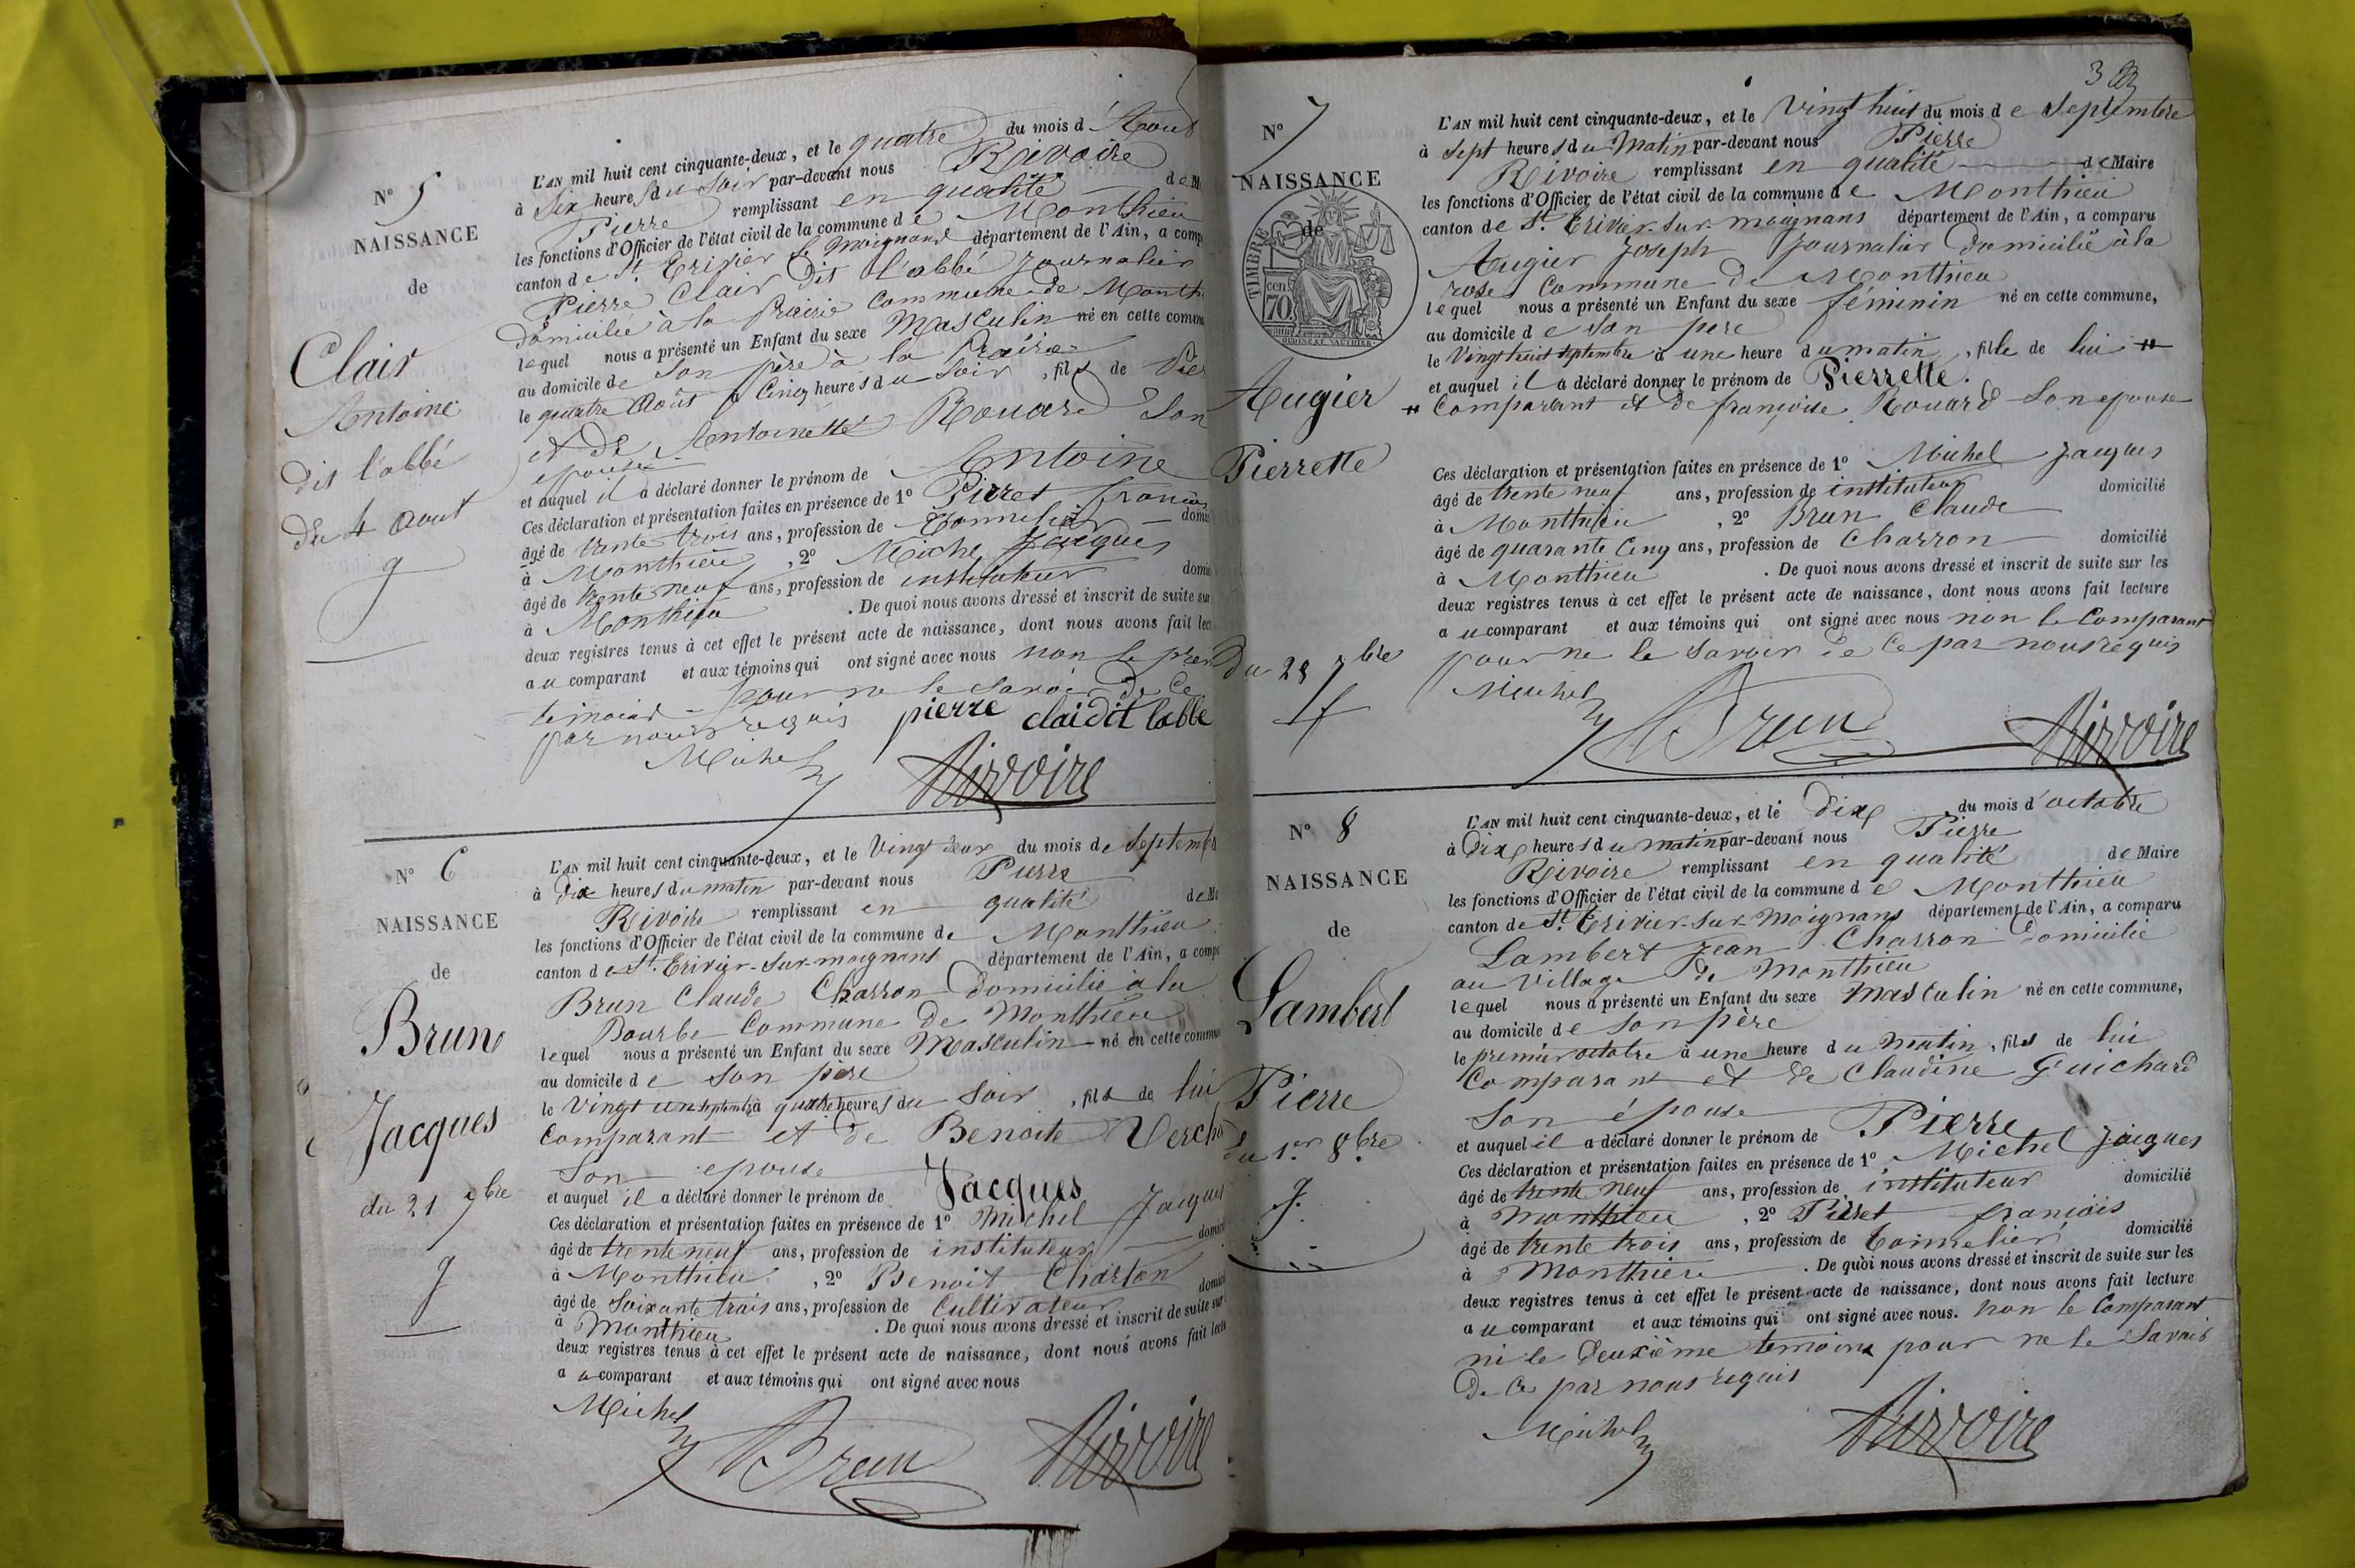 N° 5
NAISSANCE
de
Clair
Antoine
dit l'abbé
du 4 Aout
g
L'AN mil huit cent cinquante-deux, et le quatre du mois d'Aout
à Six heures du Soir par-devant nous Rivoire
Pierre remplissant en qualité de M
les fonctions d'Officier de l'état civil de la commune de Monthieu
canton de St Trivier S. Moignans département de l'Ain, a comp
Pierre Clair Dit l'abbé Journalier
domicilié à la Prairie Commune de Month
lequel nous a présenté un Enfant du sexe Masculin né en cette commu
au domicile de Son père à la Prairie
le quatre Août à Cinq heures du Soir, fils de Pier
et de Antoinette Rouard Son
epouse
et auquel il a déclaré donner le prénom de Antoine
Ces déclaration et présentation faites en présence de 1° Pierret françois
âgé de trente trois ans, profession de Tonnelier domi
à Monthieu, 2° Michel Jacques
âgé de trente neuf ans, profession de instituteur domi
à Monthieu. De quoi nous avons dressé et inscrit de suite sur
deux registres tenus à cet effet le présent acte de naissance, dont nous avons fait lec
au comparant et aux témoins qui ont signé avec nous non le prem
temoin pour ne le Savoir De Ce
par nous requis pierre clai dit labbe
Michel Rivoire
N° 6
NAISSANCE
de
Brun
Jacques
du 21 7bre
g
L'AN mil huit cent cinquante-deux, et le Vingt deux du mois de Septemb
à Dix heures du matin par-devant nous Pierre
Rivoire remplissant en qualité de M
les fonctions d'Officier de l'état civil de la commune de Monthieu
canton de St. Trivier-Sur-moignans département de l'Ain, a comp
Brun Claude Charron Domicilié à la
Bourbe Commune de Monthieu
lequel nous a présenté un Enfant du sexe Masculin né en cette commu
au domicile de Son père
le Vingt un septembre à quatre heures du Soir, fils de lui
Comparant et de Benoite Verch
Son epouse
et auquel il a déclaré donner le prénom de Jacques
Ces déclaration et présentation faites en présence de 1° Michel Jacques
âgé de trente neuf ans, profession de instituteur domici
à Monthieu, 2° Benoit Charlon
âgé de Soixante trois ans, profession de Cultivateur domici
à Monthieu. De quoi nous avons dressé et inscrit de suite sur
deux registres tenus à cet effet le présent acte de naissance, dont nous avons fait lect
au comparant et aux témoins qui ont signé avec nous
Michel Brun Rivoire
3
N° 7
NAISSANCE
de
TIMBRE
70 cen
Augier
Pierrette
du 28 7bre
f
L'AN mil huit cent cinquante-deux, et le Vingt huit du mois de Septembre
à Sept heures du Matin par-devant nous Pierre
Rivoire remplissant en qualité de Maire
les fonctions d'Officier de l'état civil de la commune de Monthieu
canton de St. Trivier-Sur-moignans département de l'Ain, a comparu
Augier Joseph Journalier Domicilié à la
rose Commune De Monthieu
lequel nous a présenté un Enfant du sexe féminin né en cette commune,
au domicile de Son père
le Vingt huit septembre à une heure du matin, fille de lui #
et auquel il a déclaré donner le prénom de Pierrette.
# Comparant et de françoise Rouard Son epouse
Ces déclaration et présentation faites en présence de 1° Michel Jacques
âgé de trente neuf ans, profession de instituteur domicilié
à Monthieu, 2° Brun Claude
âgé de quarante Cinq ans, profession de Charron domicilié
à Monthieu. De quoi nous avons dressé et inscrit de suite sur les
deux registres tenus à cet effet le présent acte de naissance, dont nous avons fait lecture
au comparant et aux témoins qui ont signé avec nous non le Comparant
pour ne le Savoir de Ce par nous requis
Michel Brun Rivoire
N° 8
NAISSANCE
de
Lambert
Pierre
du 1er 8bre
g.
L'AN mil huit cent cinquante-deux, et le Dix du mois d'octobre
à Dix heures du matin par-devant nous Pierre
Rivoire remplissant en qualité de Maire
les fonctions d'Officier de l'état civil de la commune de Monthieu
canton de St. Trivier-Sur-Moignans département de l'Ain, a comparu
Lambert Jean Charron Domicilié
au Village de Monthieu
lequel nous a présenté un Enfant du sexe Masculin né en cette commune,
au domicile de Son père
le premier octobre à une heure du Matin, fils de lui
Comparant et de Claudine Guichard
Son épouse
et auquel il a déclaré donner le prénom de Pierre
Ces déclaration et présentation faites en présence de 1° Michel Jacques
âgé de trente neuf ans, profession de instituteur domicilié
à Monthieu, 2° Pierret françois
âgé de trente trois ans, profession de Tonnelier domicilié
à Monthieu. De quoi nous avons dressé et inscrit de suite sur les
deux registres tenus à cet effet le présent acte de naissance, dont nous avons fait lecture
au comparant et aux témoins qui ont signé avec nous. non le Comparant
ni le Deuxième temoins pour ne le Savoir
De Ce par nous requis
Michel Rivoire